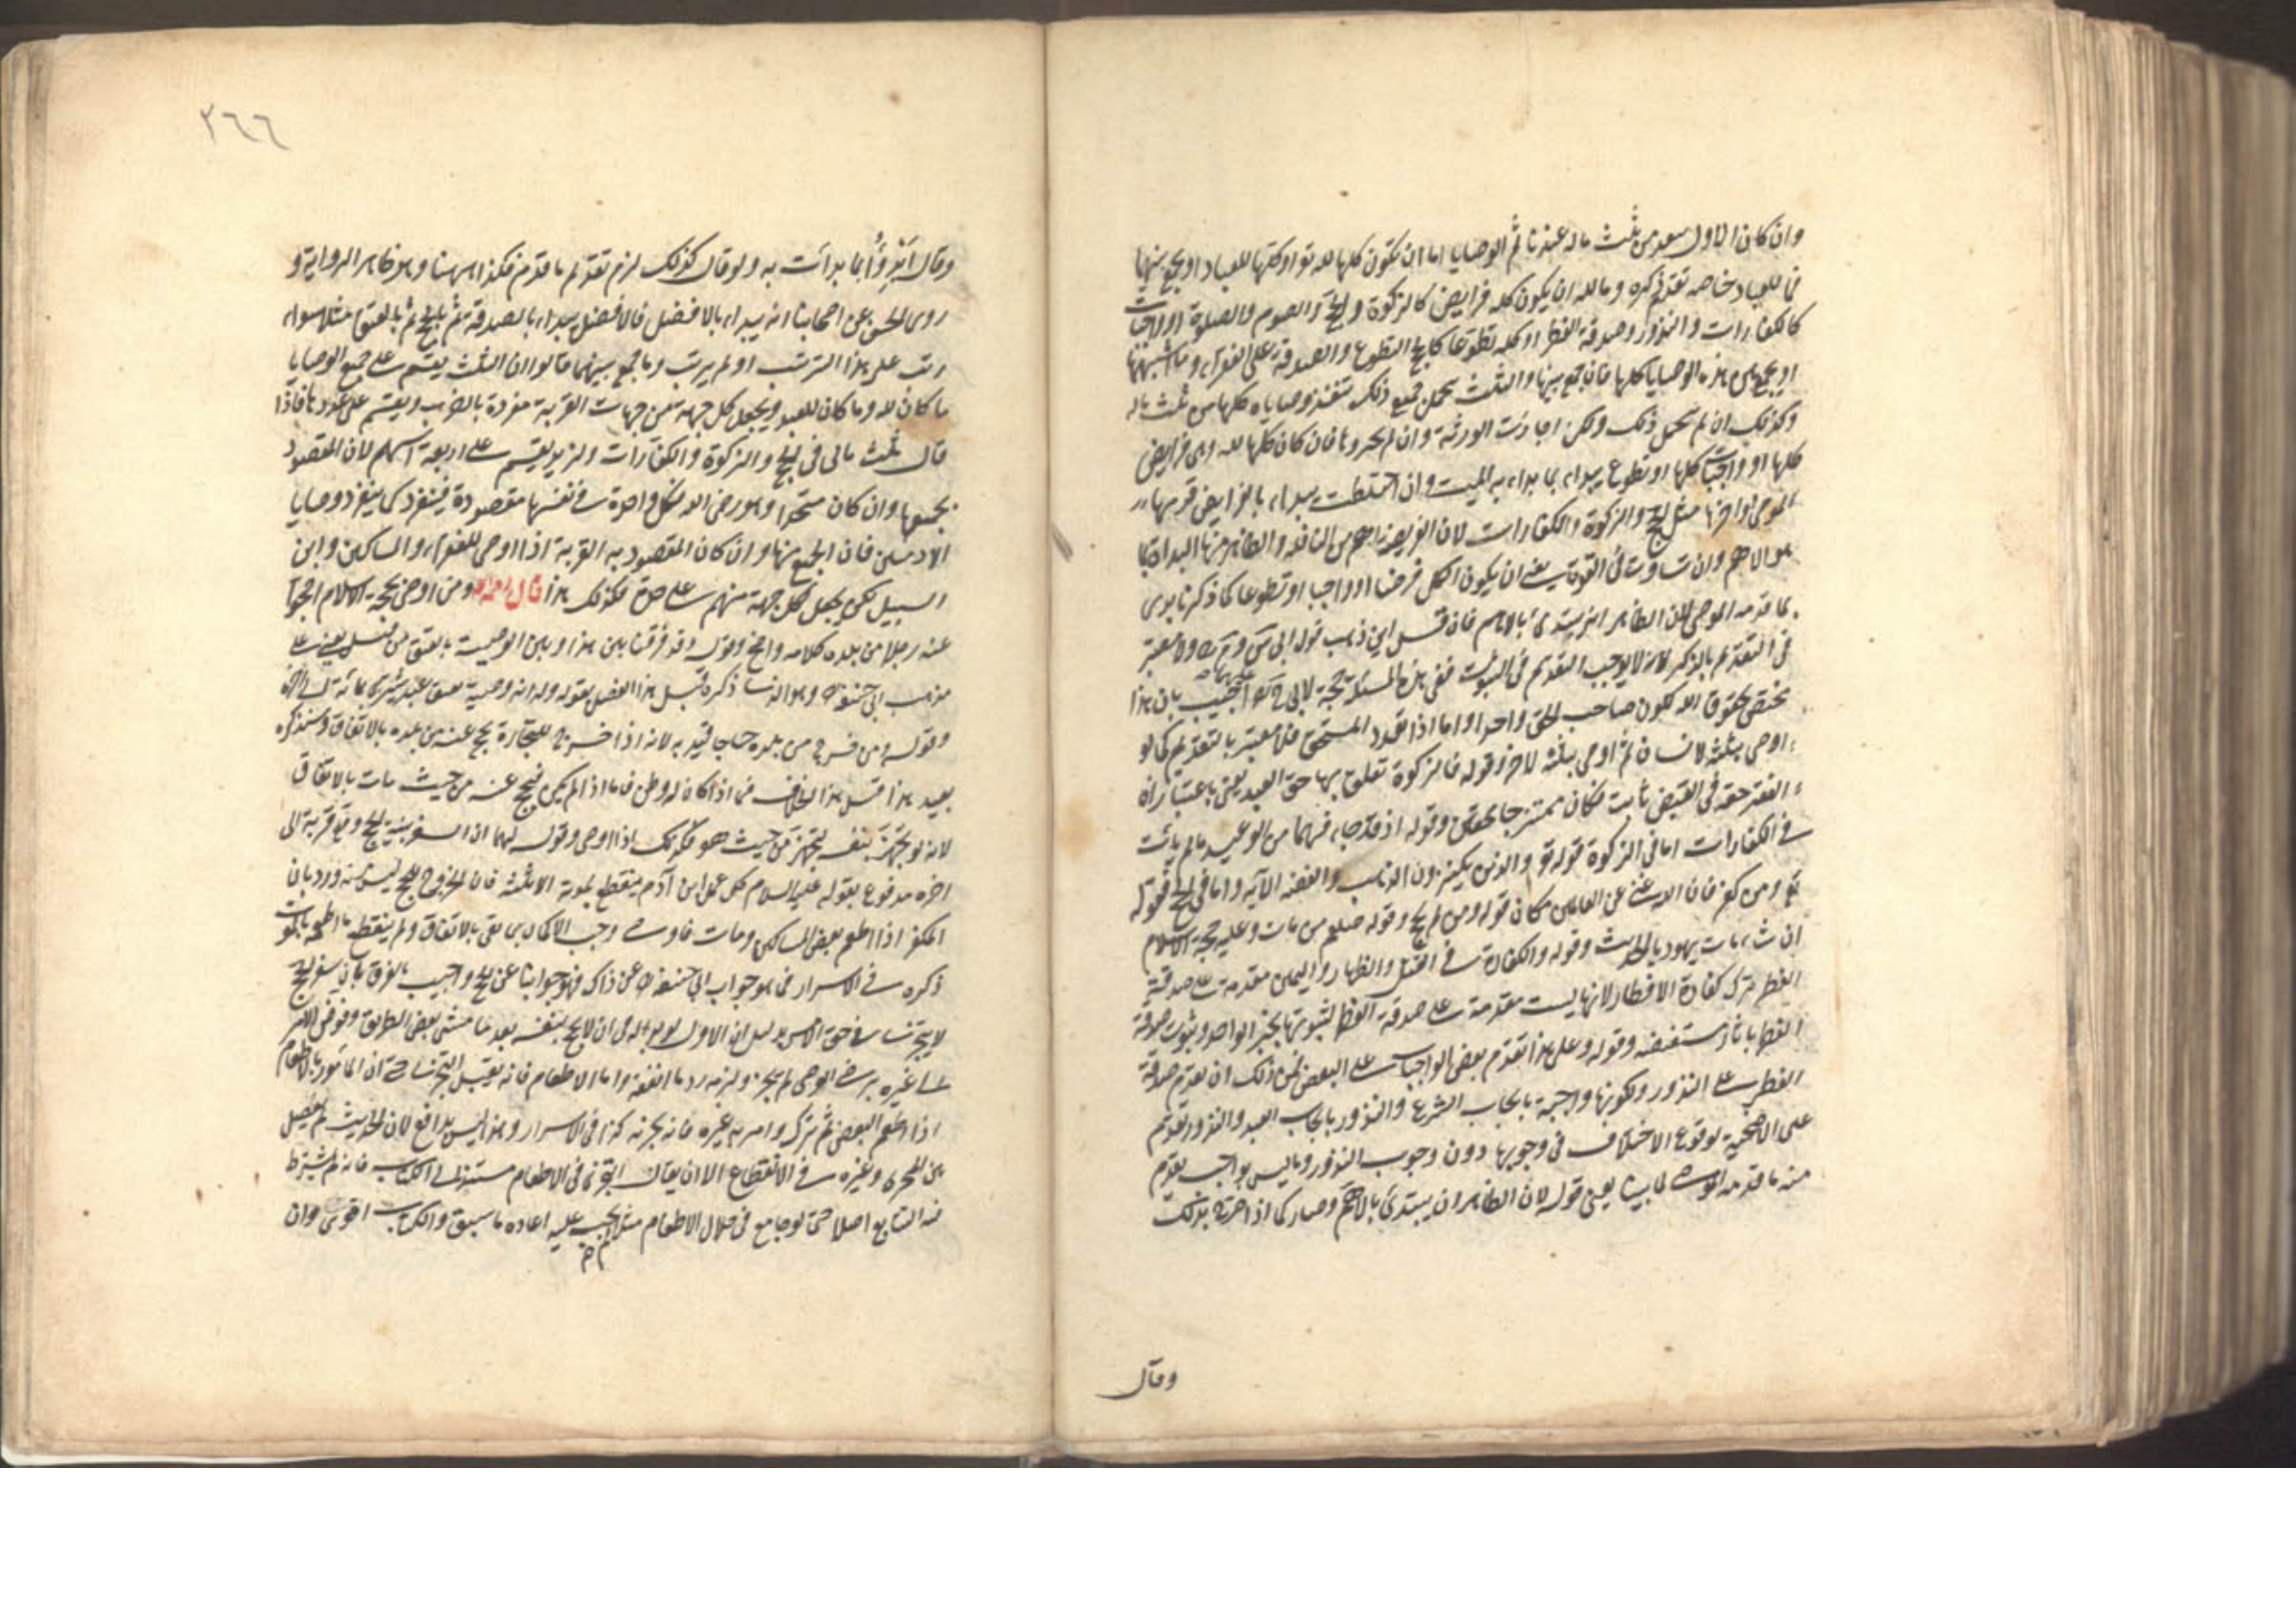 وان كان الاول ينفذ من ثلث ماله عندنا ثم الوصايا اما ان تكون كلها لله تع او كلها للعباد او يجمع بينهما
فما للعباد خاصة تقدم ذكره وما لله ان يكون كله فرايض كالزكوة والحج والصوم والصلوة او واجبات
كالكفارات والنذور وصدقة الفطر او كله تطوعا كالحج التطوع والصدقة على الفقراء وما اشبهها
او يجمع بين هذه الوصايا كلها فان جمع بينها والثلث يحمل جميع ذلك تنفذ وصاياه كلها من ثلث ماله
وكذلك ان لم يحمل ذلك ولكن اجازت الورثة وان لم يجيزوا فان كان كلها لله وهى فرايض
كلها او واجبات كلها او تطوع يبداء بما بداء به الميت وان اختلطت يبداء بالفرايض قدمها
الموصى او اخرها مثل الحج والزكوة والكفارات لان الفريضة اهم من النافلة والظاهر منه البداية بما
هو الاهم وان تساوت فى القوة بمعنى ان يكون الكل فرضا او واجبا او تطوعا كما ذكرنا بدى
بما قدمه الموصى لان الظاهر انه يبتدئ بالاهم فان قيل اين ذهب قول ابى س وم ولا معتبر
فى التقديم بالذكر لانه لا يوجب التقديم فى الثبوت ففى هذه المسئلة حجة لابى ح عليهما اجيب بان هذا
يختص بحقوق الله لكون صاحب الحق واحدا واما اذا تعدد المستحق فلا معتبر بالتقديم كما لو
اوصى بثلثه لانسان ثم اوصى بثلثه لاخر وقوله فالزكوة تعلق بها حق العبد يعنى باعتبار ان
الفقير حقه فى القبض ثابت فكان ممتزجا بحقين وقوله اذ قد جاء فيهما من الوعيد ما لم يأت
فى الكفارات اما فى الزكوة قوله تع والذين يكنزون الذهب والفضة الآية واما فى الحج فقوله
تع ومن كفر فان الله غنى عن العالمين مكان قوله ومن لم يحج وقوله صلعم من مات وعليه حجة الاسلام
ان شاء مات يهوديا الحديث وقوله والكفارة فى القتل والظهار واليمين مقدمة على صدقة
الفطر ترك كفارة الافطار لانها ليست مقدمة على صدقة الفطر لثبوتها بخبر الواحد وثبوت صدقة
الفطر باثار مستفيضة وقوله وعلى هذا تقدم بعض الواجبات على البعض فمن ذلك ان تقدم صدقة
الفطر على النذور لكونها واجبة بايجاب الشرع والنذور بايجاب العبد والنذور تقدم
على الاضحية لوقوع الاختلاف فى وجوبها دون وجوب النذور وما ليس بواجب يقدم
منه ما قدمه الموصى لما بينا يعنى قوله لان الظاهر ان يبتدئ بالاهم وصار كما اذا صرح بذلك
وقال
٢٦٦
وقال ابدؤا بما بدات به ولو قال كذلك لزم تقديم ما قدم فكذا ههنا وهو ظاهر الرواية و
روى الحسن عن اصحابنا انه يبداء بالافضل فالافضل يبداء بالصدقة ثم بالحج ثم بالعتق مثلا سواء
رتب على هذا الترتيب او لم يرتب وما جمع بينهما قالوا ان الثلث يقسم على جميع الوصايا
ما كان لله وما كان للعبد ويجعل كل جهة من جهات القربة مفردة بالضرب ويقسم على عددها فاذا
قال ثلث مالى فى الحج والزكوة والكفارات ولزيد يقسم على اربعة اسهم لان المقصود
بجميعها وان كان متحدا وهو رضى الله فكل واحدة فى نفسها مقصودة فينفرد كما ينفرد وصايا
الادميين فان الجميع منها وان كان المقصود به القربة اذا اوصى للفقراء والمساكين وابن
السبيل لكن يجعل لكل جهة منهم على حدة فكذلك هذا قال رحمه الله ومن اوصى بحجة الاسلام احجوا
عنه رجلا من بلده كلامه واضح وقوله وقد فرقنا بين هذا وبين الوصية بالعتق من قبل يعنى على
مذهب ابى حنيفة وهو الذى ذكره قبل هذا الفصل بقوله وله انه وصية بعتق عبد يشترى بمائة الى اخره
وقوله ومن خرج من بلده حاجا قيد به لانه اذا خرج للتجارة يحج عنه من بلده بالاتفاق وسنذكره
بعيد هذا قيل هذا الخلاف فيما اذا كان له وطن فاما اذا لم يكن فيحج عنه من حيث مات بالاتفاق
لانه لو تجهز بنفسه لتجهز من حيث هو فكذلك اذا اوصى وقوله لهما ان السفر بنية الحج وقع قربة الى
اخره مدفوع بقوله عليه السلام كل عمل ابن آدم ينقطع بموته الا ثلثة فان الخروج للحج ليس منه ورد بان
المكفر اذا اطعم بعض المساكين ومات فاوصى وجب الاكمال بما بقى بالاتفاق ولم ينقطع ما اطعمه بالموت
ذكره فى الاسرار فما هو جواب ابى حنيفة عن ذاك فهو جوابنا عن الحج واجيب بالفرق بان سفر الحج
لا يتجزئ فى حق الامر بدليل ان الاول لو بدا له ان لا يحج بنفسه بعد ما مشى بعض الطريق وفوض الامر
الى غيره برضى الوصى لم يجز ولزمه رد ما انفقه واما الاطعام فانه يقبل التجزى حتى ان المأمور بالاطعام
اذا اطعم البعض ثم ترك وامر به غيره فانه يجزيه كذا فى الاسرار وهذا ليس بدافع لان الحديث لم يفصل
بين المتجزى وغيره فى الانقطاع الا ان يقال التجزى فى الاطعام مستند الى الكتاب فانه لم يشترط
فيه التتابع اصلا حتى لو جامع فى خلال الاطعام مثلا لم يجب عليه اعادة ما سبق والكتاب اقوى وان